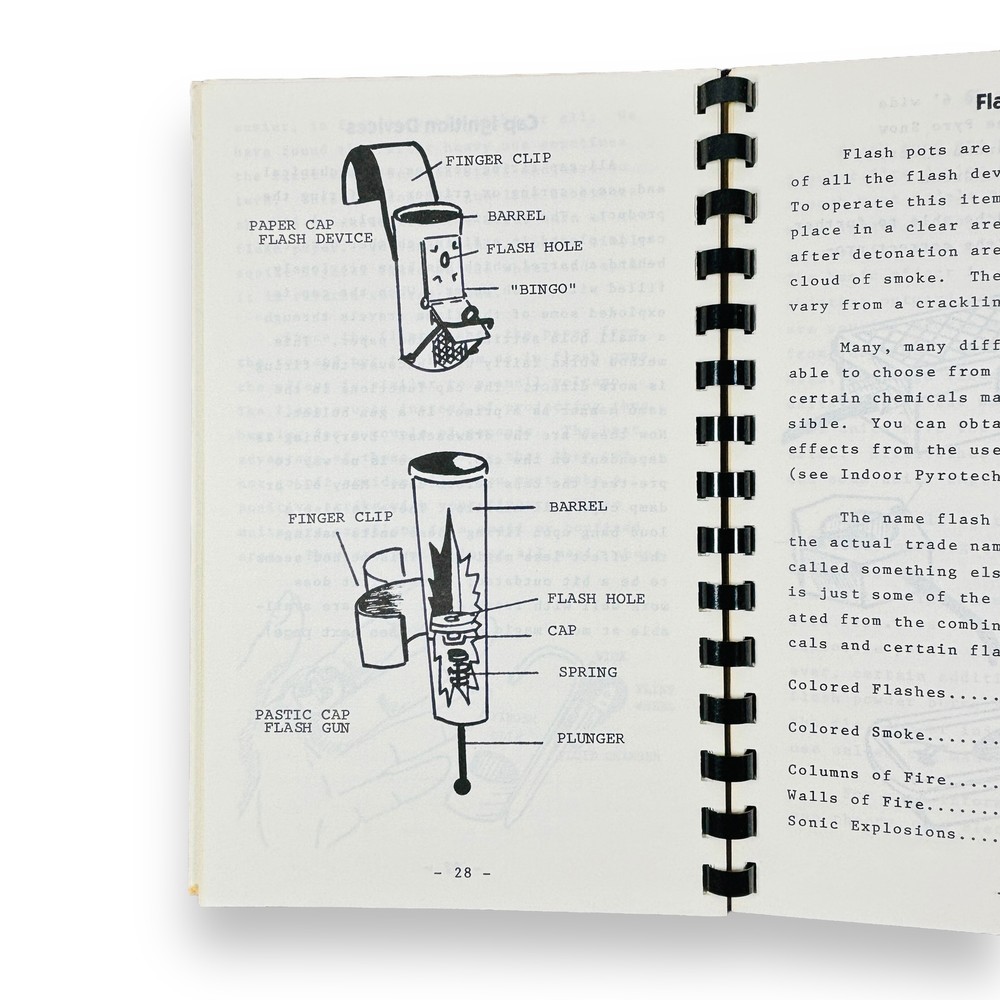 FINGER CLIP
BARREL
PAPER CAP
FLASH DEVICE
FLASH HOLE
"BINGO"
BARREL
FINGER CLIP
FLASH HOLE
CAP
SPRING
PASTIC CAP
FLASH GUN
PLUNGER
- 28 -
Fla
Flash pots are
of all the flash dev
To operate this item
place in a clear are
after detonation are
cloud of smoke. The
vary from a cracklin
Many, many diff
able to choose from
certain chemicals ma
sible. You can obta
effects from the use
(see Indoor Pyrotech
The name flash
the actual trade nam
called something els
is just some of the
ated from the combin
cals and certain fla
Colored Flashes.....
Colored Smoke.......
Columns of Fire.....
Walls of Fire.......
Sonic Explosions....